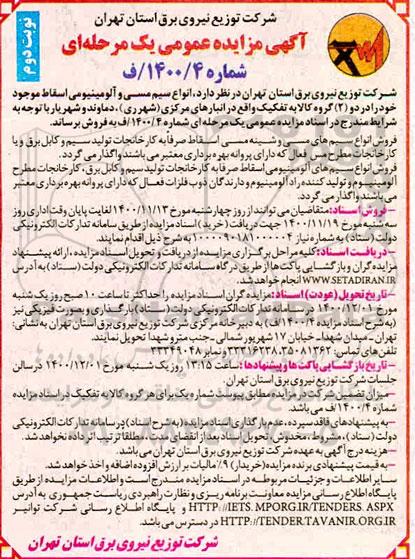 شرکت توزیع نیروی برق استان تهران
نوبت دوم
آگهی مزایده عمومی یک مرحله‌ای
شماره ۱۴۰۰/۴/ف
شرکت توزیع نیروی برق استان تهران در نظر دارد، انواع سیم مسی و آلومینیومی اسقاط موجود
خود را در دو (۲) گروه کالا به تفکیک واقع در انبارهای مرکزی (شهرری)، دماوند و شهریار با توجه به
شرایط مندرج در اسناد مزایده عمومی یک مرحله ای شماره ۱۴۰۰/۴/ف به فروش برساند.
فروش انواع سیم های مسی و شینه مسی اسقاط صرفا به کارخانجات تولید سیم و کابل برق و یا
کارخانجات مطرح مس فعال که دارای پروانه بهره برداری معتبر می باشند واگذار می گردد.
فروش انواع سیم های آلومینیومی اسقاط صرفا به کارخانجات تولید سیم و کابل برق، کارخانجات مطرح
آلومینیوم و تولید کننده راد آلومینیوم و دارندگان ذوب فلزات فعال که دارای پروانه بهره برداری معتبر
می باشند واگذار می گردد.
–فروش اسناد: متقاضیان می توانند از روز چهار شنبه مورخ ۱۴۰۰/۱۱/۱۳ لغایت پایان وقت اداری روز
سه شنبه مورخ ۱۴۰۰/۱۱/۱۹ جهت دریافت (خرید) اسناد مزایده از طریق سامانه تدارکات الکترونیکی
دولت (ستاد) به شماره نیاز ۱۰۰۰۰۹۰۱۸۱۰۰۰۰۰۴ به شرح ذیل اقدام نمایند.
–دریافت اسناد: کلیه مراحل برگزاری مزایده از دریافت و تحویل اسناد مزایده، ارائه پیشنهاد
مزایده گران و بازگشایی پاکت ها از طریق درگاه سامانه تدارکات الکترونیکی دولت (ستاد) به آدرس
WWW.SETADIRAN.IR انجام خواهد شد.
–تاریخ تحویل (عودت) اسناد: مزایده گران اسناد مزایده را حداکثر تا ساعت ۱۰ صبح روز یک شنبه
مورخ ۱۴۰۰/۱۲/۰۱ در سامانه تدارکات الکترونیکی دولت (ستاد) بارگذاری و بصورت فیزیکی نیز
(به شرح اسناد مزایده ۱۴۰۰/۴/ف) به دبیرخانه مرکزی شرکت توزیع نیروی برق استان تهران به نشانی:
تهران – میدان شهدا – خیابان ۱۷ شهریور شمالی – جنب مترو شهدا تحویل نمایند.
تلفن های تماس: ۳۵۰۸۱۳۶۲، ۳۳۳۱۶۲۳۸ و نمابر ۳۳۳۴۹۰۴۸
–تاریخ بازگشایی پاکت ها و پیشنهادها: ساعت ۱۳:۱۵ روز یک شنبه مورخ ۱۴۰۰/۱۲/۰۱ در سالن
جلسات شرکت توزیع نیروی برق استان تهران.
–میزان تضمین شرکت در مزایده مطابق پیوست شماره یک برای هر گروه کالا به تفکیک در اسناد مزایده
شماره ۱۴۰۰/۴/ف می باشد.
–به پیشنهادهای فاقد سپرده، عدم بارگذاری اسناد مزایده (به شرح اسناد) در سامانه تدارکات الکترونیکی
دولت (ستاد)، مشروط، مخدوش، تحویل اسناد بعد از انقضای مدت، مطلقا ترتیب اثر داده نخواهد شد.
–هزینه درج آگهی به عهده شرکت توزیع نیروی برق استان تهران می باشد.
–به قیمت پیشنهادی برنده مزایده (خریدار) ۹٪ مالیات بر ارزش افزوده اضافه و اخذ خواهد شد.
سایر اطلاعات و جزئیات مربوطه در اسناد مزایده مندرج است و اطلاعات مزایده از طریق
پایگاه اطلاع رسانی مزایده معاونت برنامه ریزی و نظارت راهبردی ریاست جمهوری به آدرس
HTTP://IETS.MPORG.IR/TENDERS.ASPX و پایگاه اطلاع رسانی شرکت توانیر
HTTP://TENDER.TAVANIR.ORG.IR در دسترس می باشد.
شرکت توزیع نیروی برق استان تهران